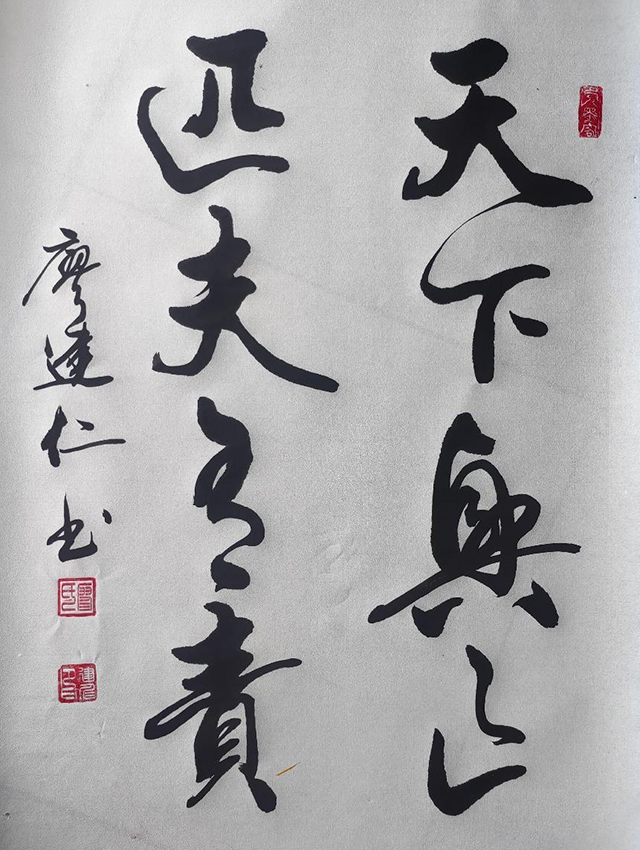 天下興亡
匹夫有責
廖達仁书